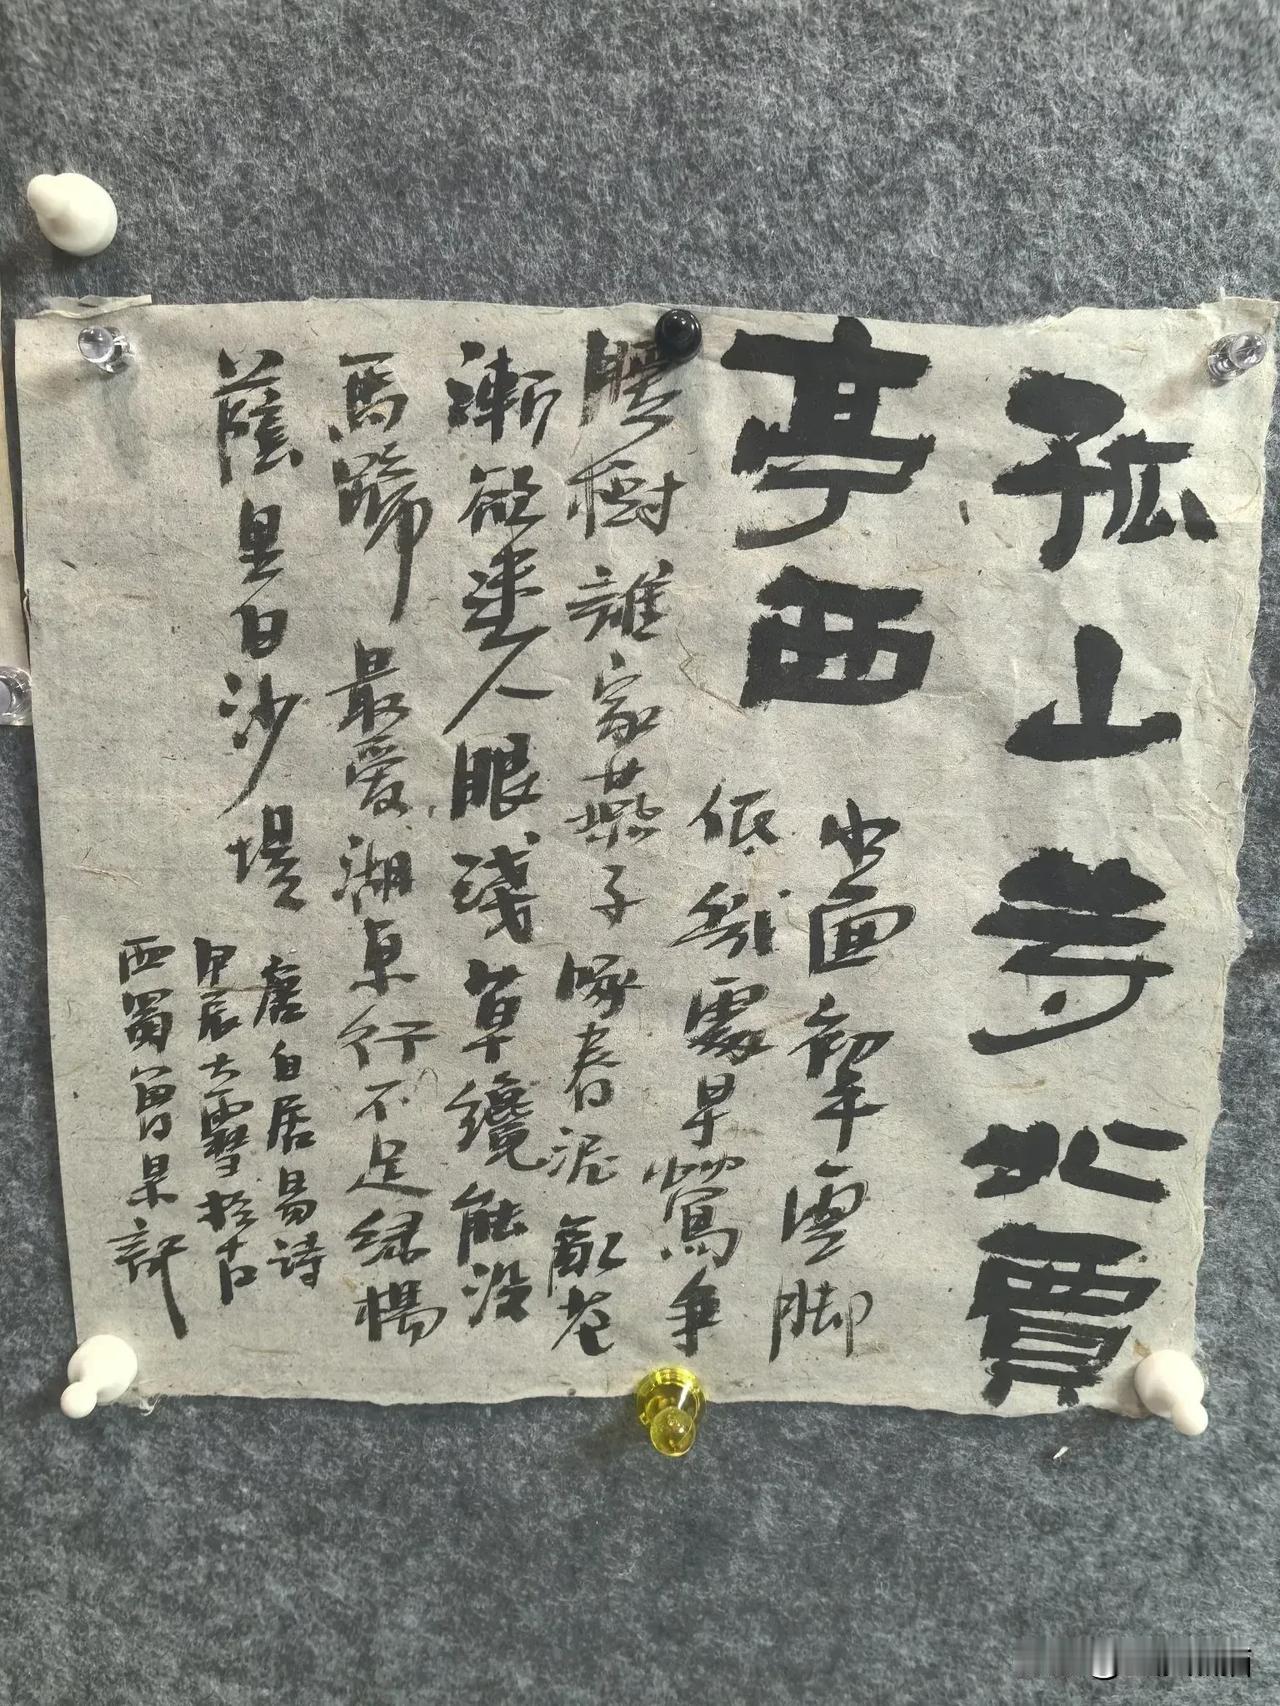 孤山寺北賈
亭西
水面初平雲脚
低幾處早鶯爭
暖樹誰家燕子啄春泥亂花
漸欲迷人眼淺草纔能没
馬蹄最爱湖東行不足绿楊
蔭里白沙堤
唐白居易诗
甲辰大雪於
西蜀曾杲記